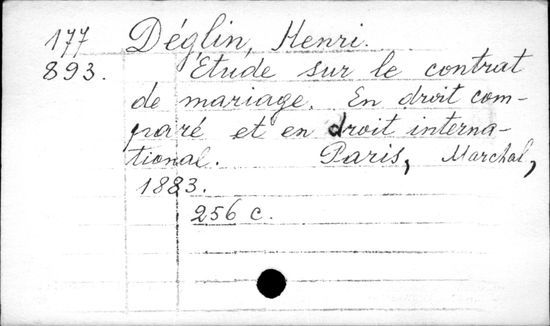 177 Déglin, Henri.
893. Etude sur le contrat
de mariage. En droit com-
paré et en droit interna-
tional. Paris, Marchal,
1883.
256 c.